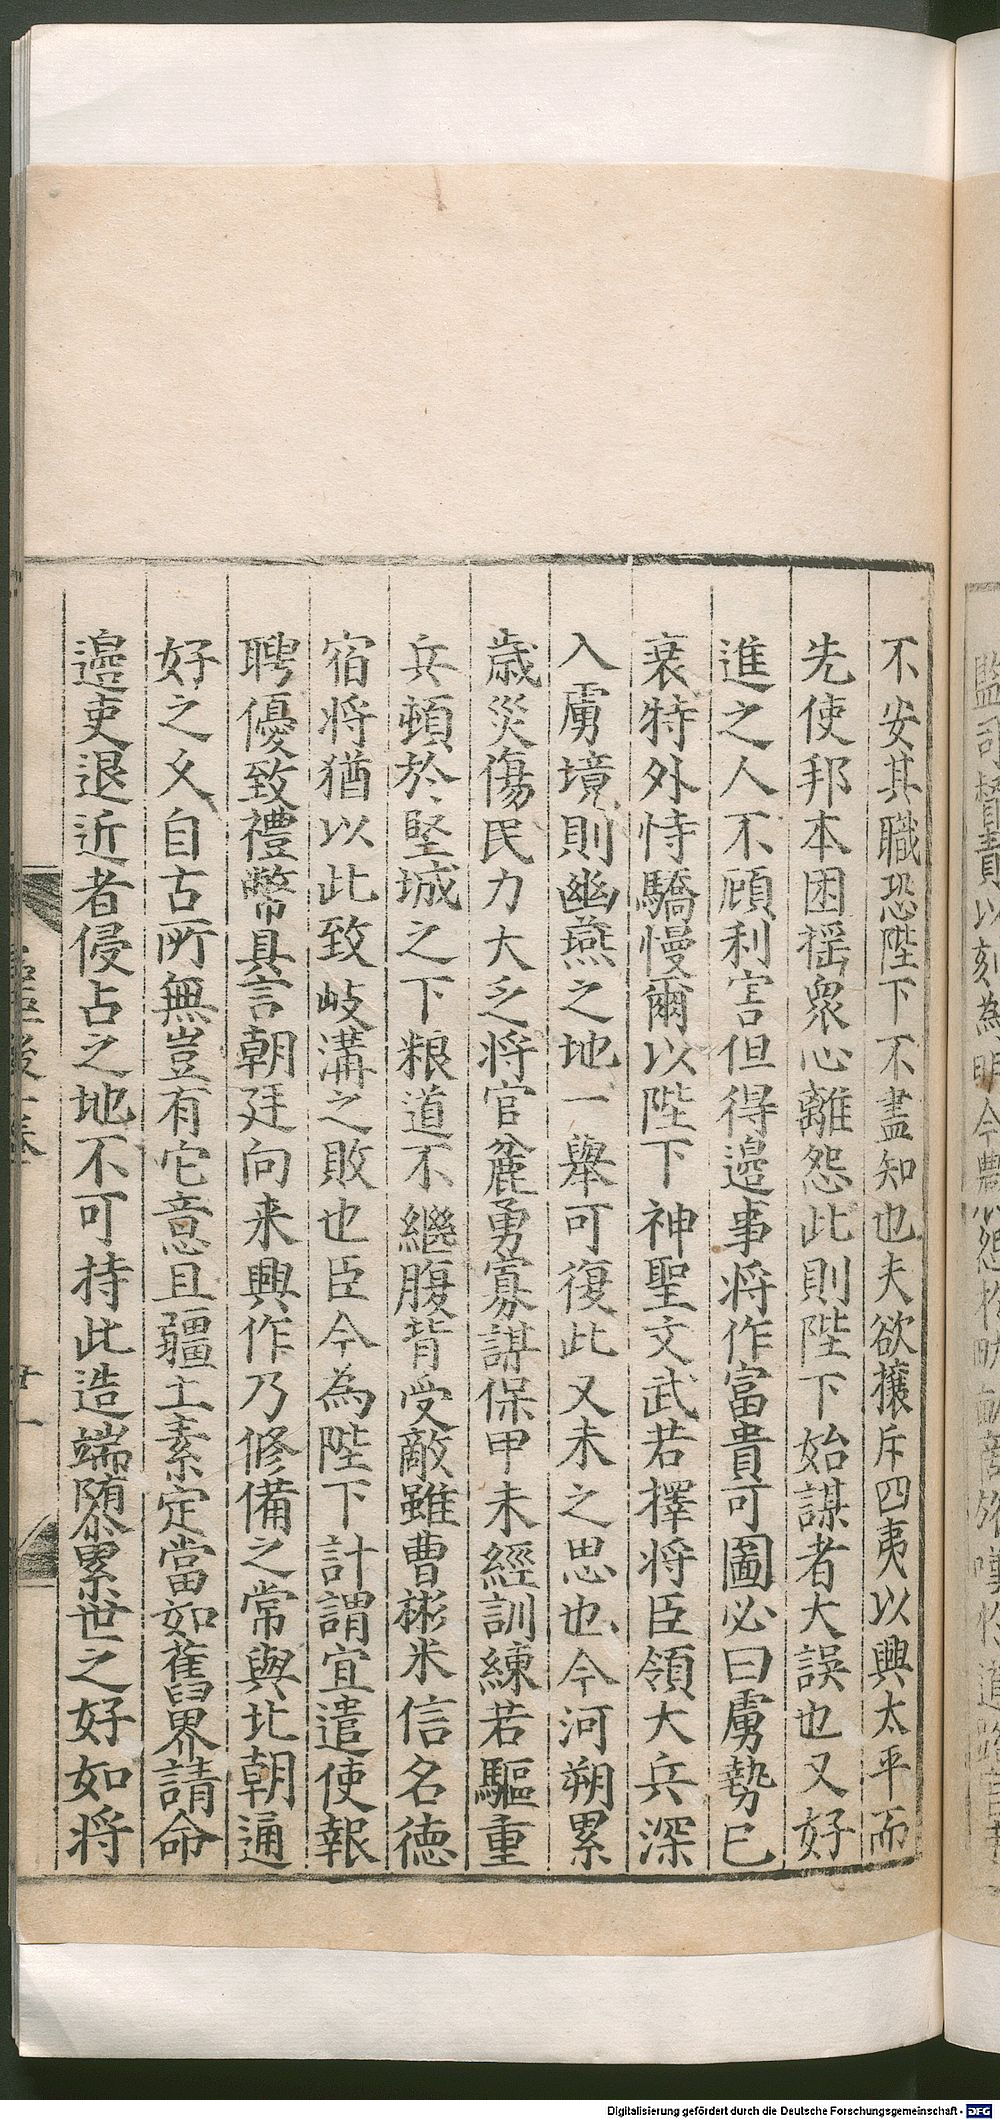 不安其職恐陛下不盡知也夫欲攘斥四夷以興太平而
先使邦本困搖衆心離怨此則陛下始謀者大誤也又好
進之人不顧利害但得邉事将作富貴可圖必曰虜勢已
衰特外恃驕慢爾以陛下神聖文武若擇将臣領大兵深
入虜境則幽燕之地一舉可復此又未之思也今河朔累
歳災傷民力大乏将官麄勇寡謀保甲未經訓練若驅重
兵頓於堅城之下粮道不繼腹背受敵雖曹彬米信名德
宿将猶以此致岐溝之敗也臣今為陛下計謂宜遣使報
聘優致禮幣具言朝廷向来興作乃修備之常與北朝通
好之乆自古所無豈有它意且疆土素定當如舊界請命
邉吏退近者侵占之地不可持此造端隳累世之好如将
卷
廿一
Digitalisierung gefördert durch die Deutsche Forschungsgemeinschaft - DFG